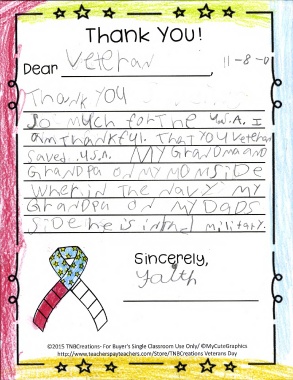 Thank You!
Dear Veteran, 11-8-0
Thank YOU
So much for the U.S.A. I
am thankful. That you veteran
saved U.S.A. My Grandma and
Grandpa on my mom side
wher in the navy my
Grandpa on my Dads
side he is in the military.
Sincerely,
Faith
©2015 TNBCreations- For Buyer's Single Classroom Use Only/ ©MyCuteGraphics
http://www.teacherspayteachers.com/Store/TNBCreations Veterans Day